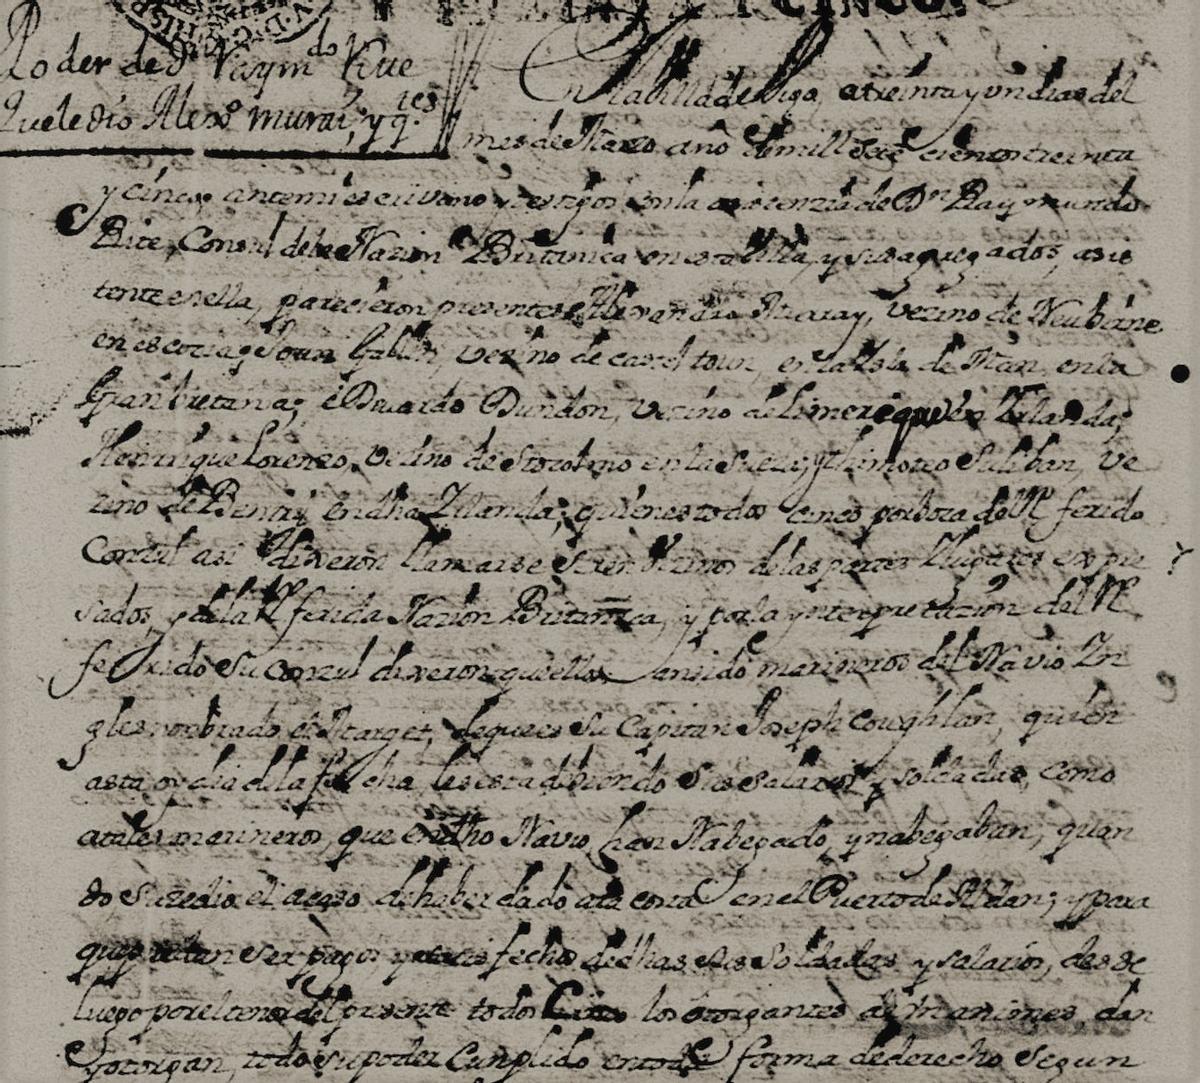 Poder de Dn Raymdo Vite
Que le dio Alexo murai, y qtes
En la billa de Vigo, a treinta y un dias del
mes de Marzo año de mill sete cientos treinta
y cinco, ante mi escrivano y testigos con la asistenzia de Dn Raymundo
Bite, Consul de la Nazion Britanica en esta Villa, y sus agregados, asis
tente en ella, parecieron presentes Alexandro Muray, vezino de
en escocia; Joan vezino de castel toun, en la Isla de Man, en la
Gran bretana; e Duardo Dundon, vezino de Limerique en Irlanda;
Henrrique Lorenzo, vezino de Stocolmo en la Suezia; y thimoteo Suliban, ve
zino de Bentri en dha Irlanda; quienes todos cinco por boca del Re ferido
Conzul asi dixeron llamarse y ser vezinos de las partes y lugares expre
sados, y de la Re ferida Nazion Britanica, y por la ynterpretazion del Re
ferido Su conzul dixeron que ellos han sido marineros del Navio In
gles nonbrado el Marget, de que es Su Capitan Joseph Coughlan, quien
asta oy dia de la fecha les esta debiendo Sus Salarios y soldadas, como
a tales marineros, que en dho Navio han Nabegado, y nabegaban, quan
do Suzedio el acaso de haber dado ala costa en el Puerto de Aldan; y para
que puedan ser pagos y satisfechos de dhas Sus Soldadas y salarios, desde
luego por el tenor del presente todos Cinco los otorgantes de mancomun, dan
y otorgan, todo su poder Cunplido en toda forma de derecho Segun